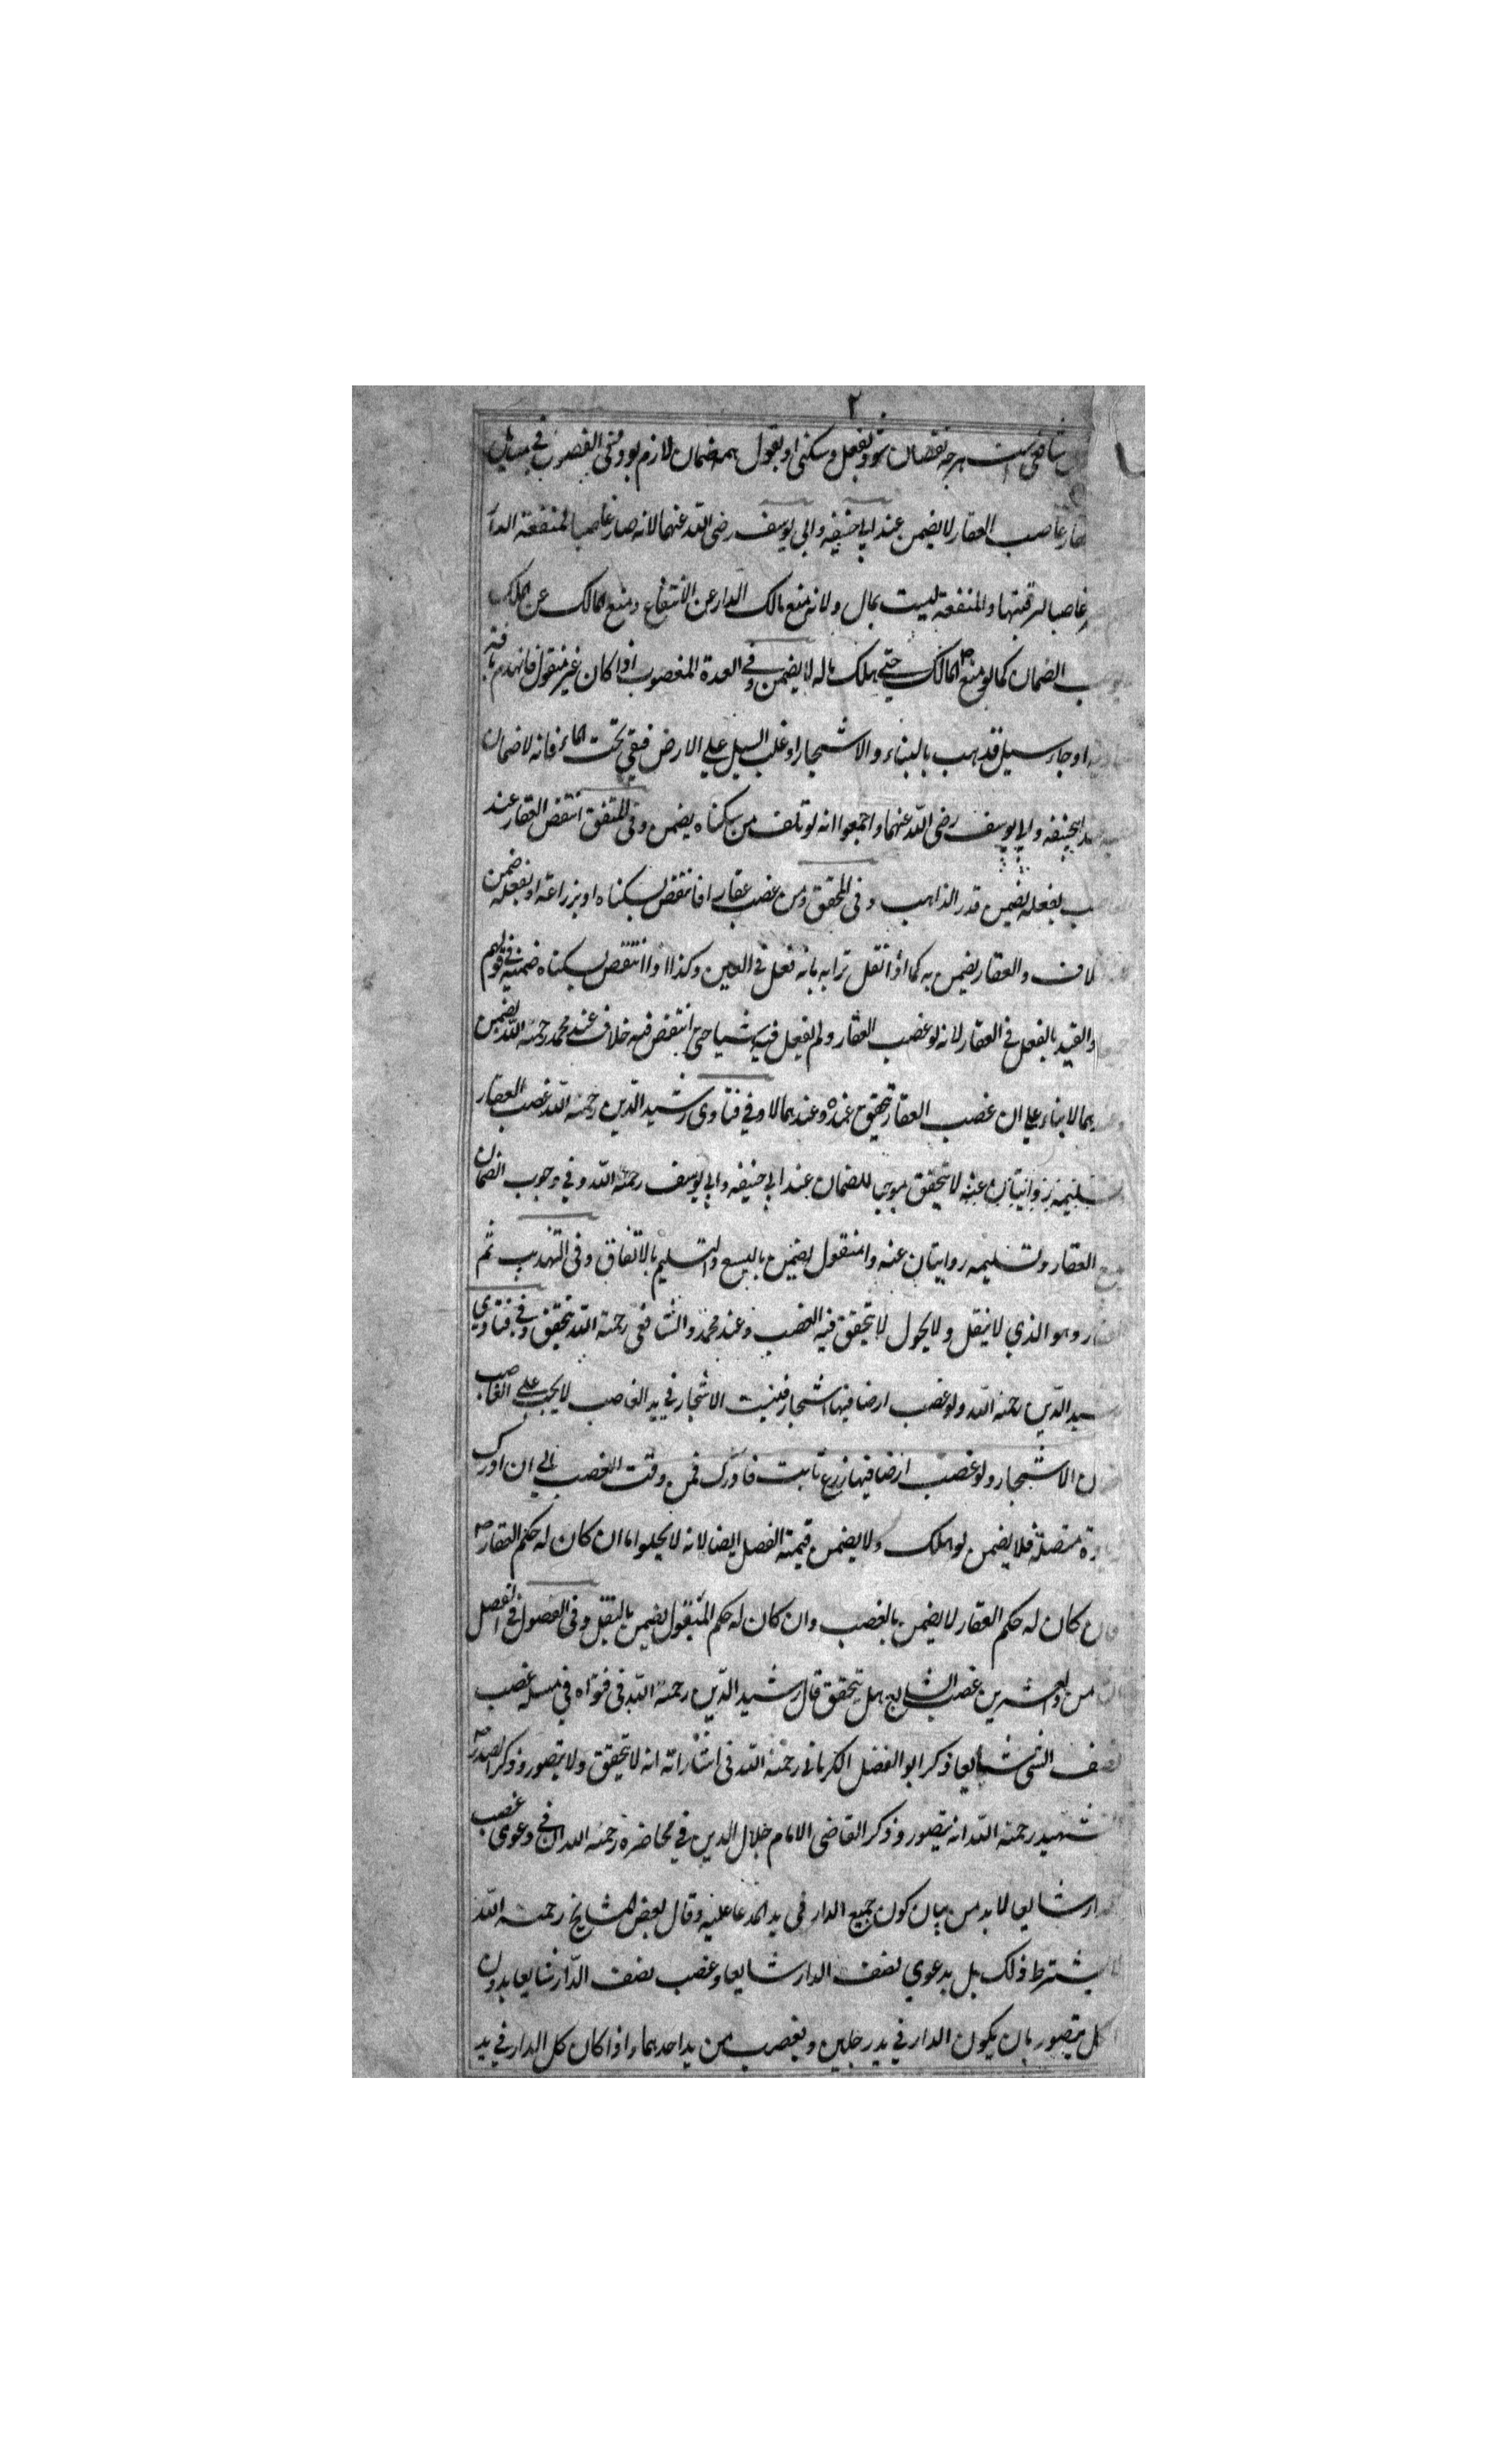 ٢
شافعی است هرچه نقصان شود بفعل و سکنی او بقول همه ضمان لازم بود وفی الغصب فی
غاصب العقار لا یضمن عند ابی حنیفه وابی یوسف رضی الله عنهما لانه صار غاصبا لمنفعة الدار
غاصبا لرقبتها والمنفعة لیست بمال ولانه منع مالک الدار عن الانتفاع ومنع المالک عن الملک
الضمان کما لو منع المالک حتی هلک ماله لا یضمن وفی العدة المغصوب اذا کان غیر منقول فانهدم بافة
او جاء سیل فذهب بالبناء والاشجار او غلب السیل علی الارض فبقی تحت الماء فانه لا ضمان
ابیحنیفه وابی یوسف رضی الله عنهما واجمعوا انه لو تلف من سکناه یضمن وفی المتفق انتقض العقار عند
بفعله یضمن قدر الذاهب وفی المحقق ومن غصب عقارا فانتقض بسکناه او بزراعته او بفعله ضمن
والعقار یضمن به کما اذا نقل ترابه بانه فعل فی العین وکذا اذا انتقص بسکناه ضمنه فی قولهم
والقید بالفعل فی العقار لانه لو غصب العقار ولم یفعل فیه شیا حتی انتقض فیه خلاف عند محمد رحمة الله یضمن
بناء علی ان غصب العقار یتحقق عنده وعندهما لا وفی فتاوی رشید الدین رحمة الله غصب العقار
وتسلیمه روایتان عنه لا یتحقق موجبا للضمان عند ابی حنیفه وابی یوسف رحمة الله وفی وجوب الضمان
العقار وتسلیمه روایتان عنه والمنقول یضمن بالبیع والتسلیم بالاتفاق وفی التهذیب ثم
العقار وهو الذی لا ینقل ولا یحول لا یتحقق فیه الغصب وعند محمد والشافعی رحمة الله یتحقق وفی فتاوی
رشید الدین رحمة الله ولو غصب ارضا فیها اشجار فنبت الاشجار فی ید الغاصب لا یجب علی الغاصب
الاشجار ولو غصب ارضا فیها زرع نابت فادرک فمن وقت الغصب الی ان ادرک
متصلة فلا یضمن لو هلک ولا یضمن قیمة الفصل ایضا لانه لا یخلوا اما ان کان له حکم العقار
فان کان له حکم العقار لا یضمن بالغصب وان کان له حکم المنقول یضمن بالنقل وفی الفصول فی الفصل
من والعشرین غصب الشایع هل یتحقق قال رشید الدین رحمة الله فی فتواه فی مسئله غصب
نصف الشی شایعا ذکر ابو الفضل الکرمانی رحمة الله فی اشاراته انه لا یتحقق ولا یتصور وذکر الصدر
شهید رحمة الله انه یتصور وذکر القاضی الامام جلال الدین فی محاضره رحمة الله ان فی دعوی غصب
شایعا لا بد من بیان کون جمیع الدار فی ید المدعا علیه وقال بعض المشایخ رحمة الله
یشترط ذلک بل بدعوی نصف الدار شایعا وغصب نصف الدار شایعا بدون
کل یتصور بان یکون الدار فی ید رجلین ویغصب من ید احدهما واذا کان کل الدار فی ید